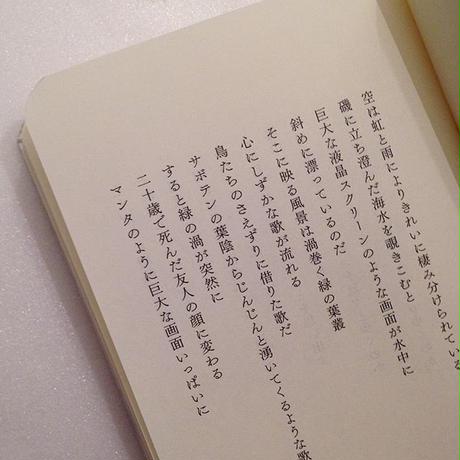 空は虹と雨によりきれいに棲み分けられている
磯に立ち澄んだ海水を覗きこむと
巨大な液晶スクリーンのような画面が水中に
斜めに漂っているのだ
そこに映る風景は渦巻く緑の葉叢
心にしずかな歌が流れる
鳥たちのさえずりに借りた歌だ
サボテンの葉陰からじんじんと湧いてくるような歌
すると緑の渦が突然に
二十歳で死んだ友人の顔に変わる
マンタのように巨大な画面いっぱいに